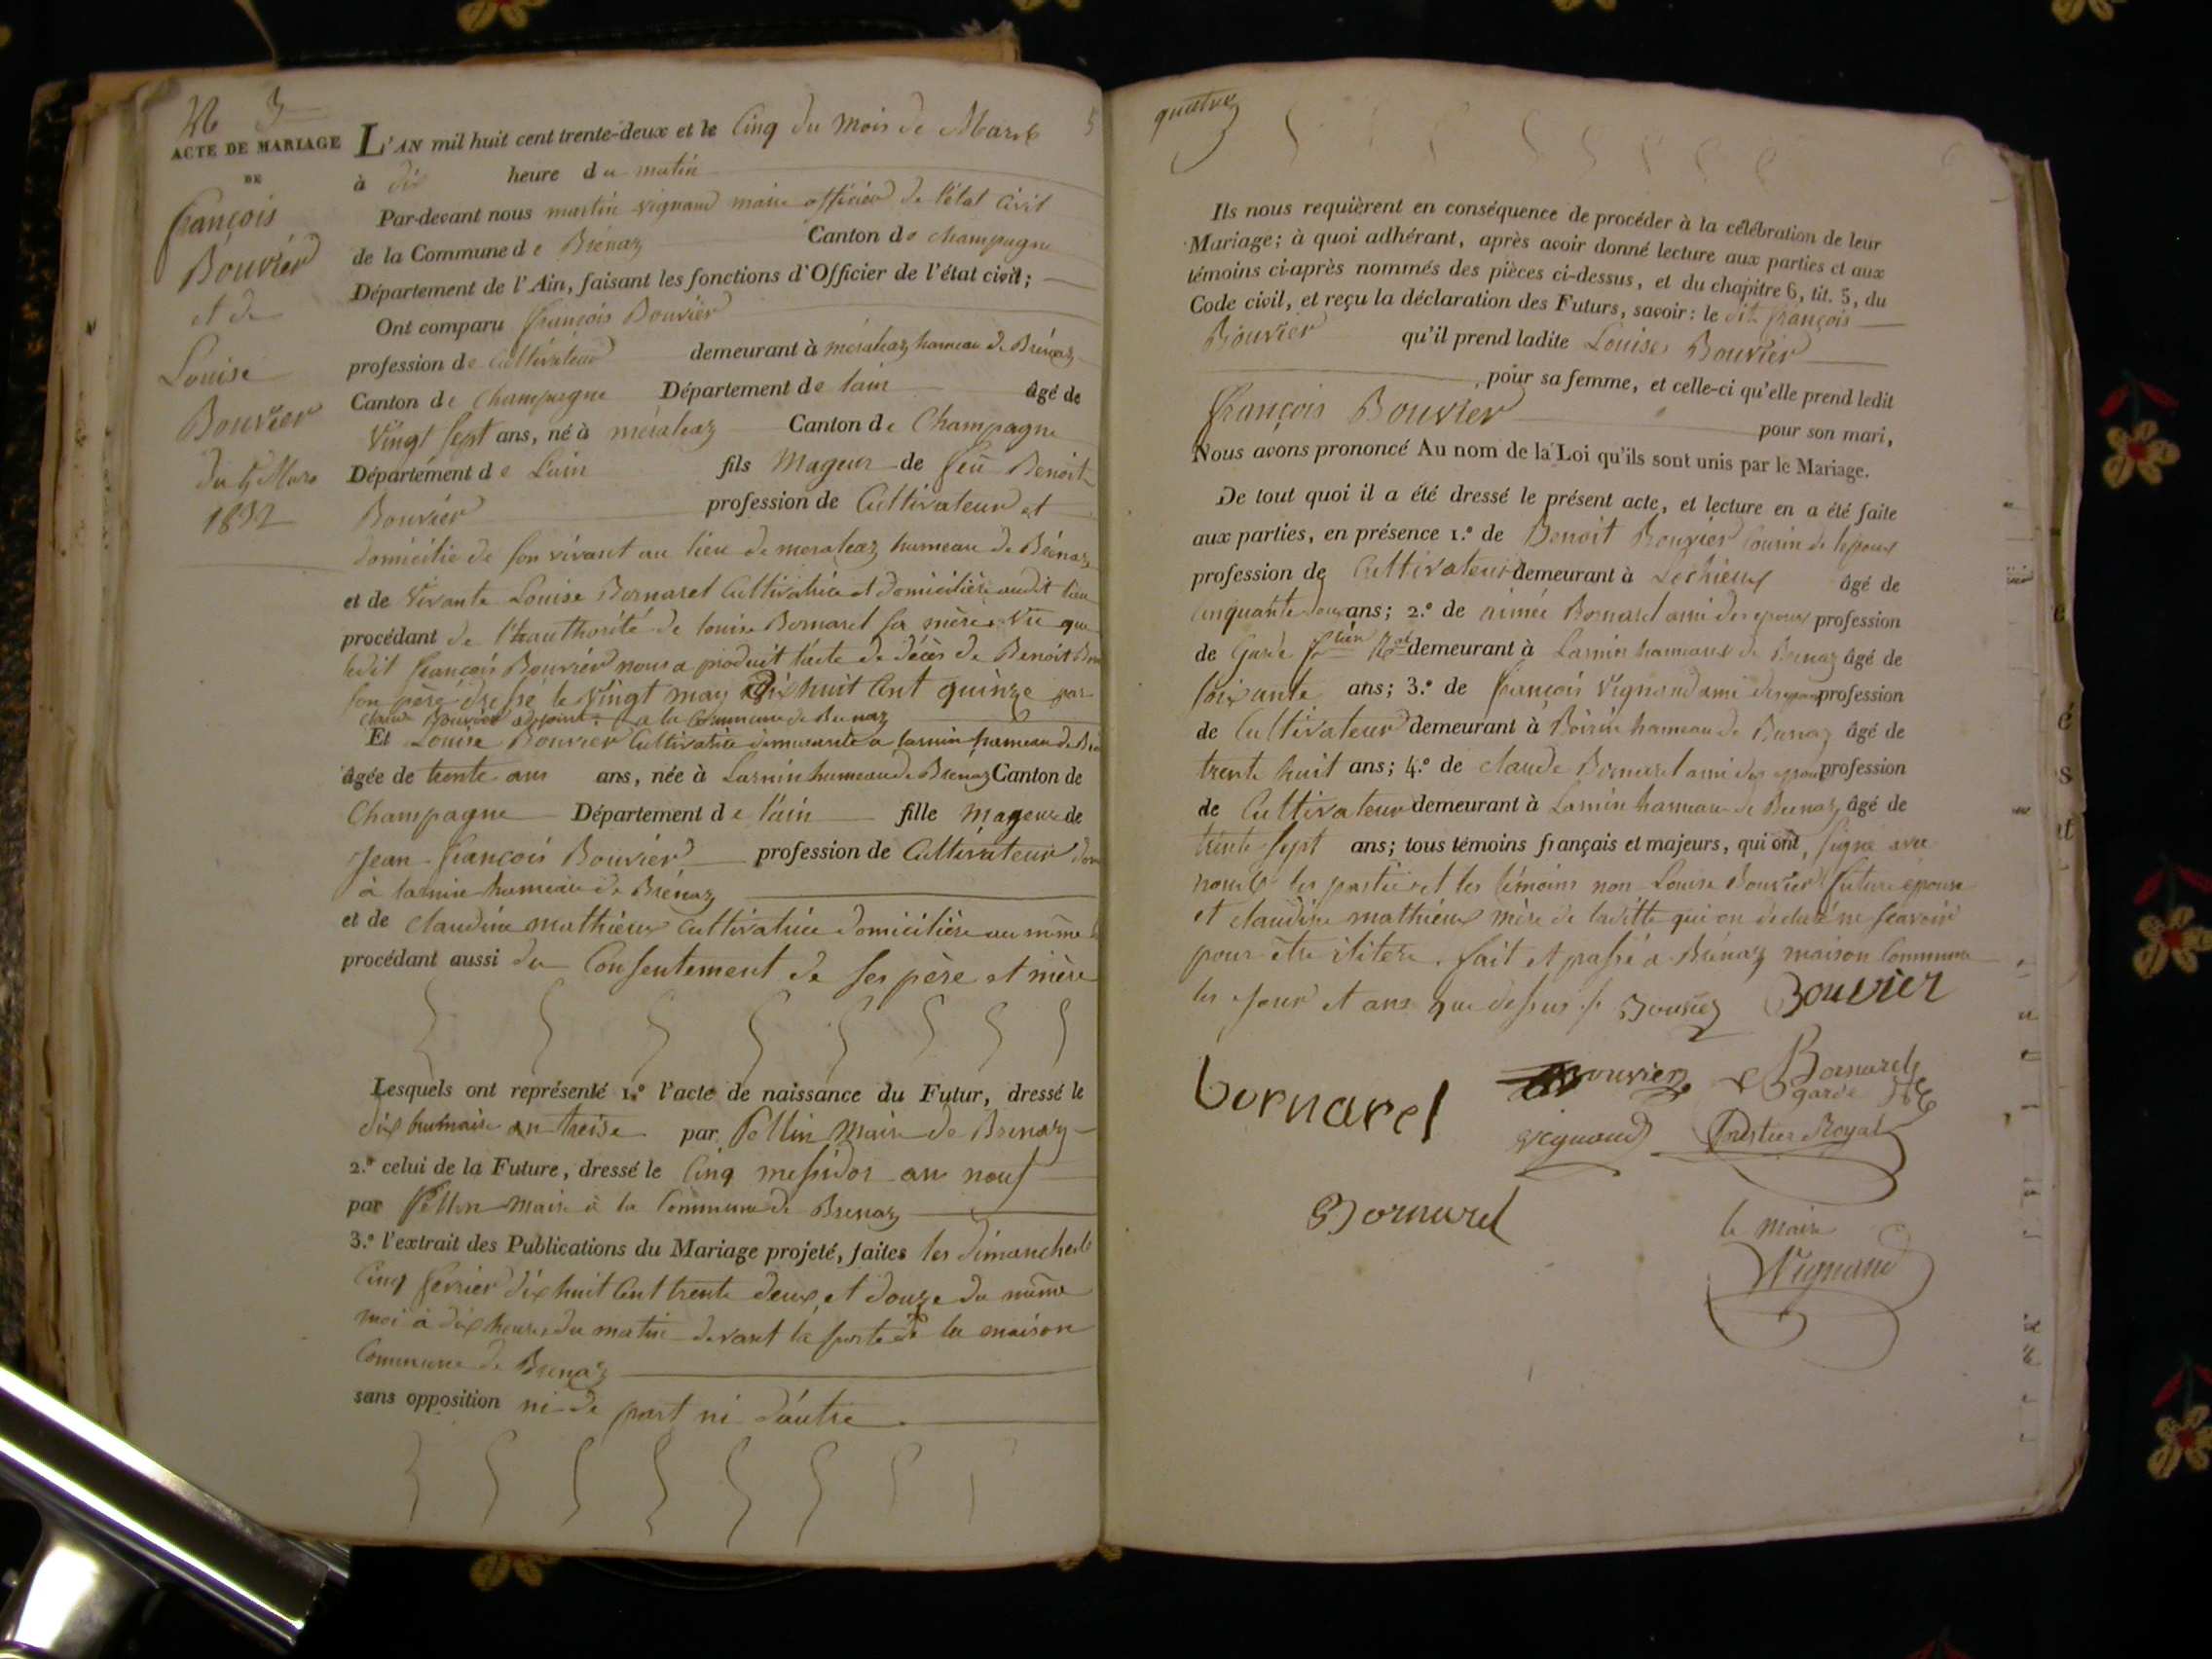 N 3
ACTE DE MARIAGE
DE
françois
Bouvier
et de
Louise
Bouvier
du 5 Mars
1832
L'AN mil huit cent trente-deux et le Cinq du mois de Mars
à dix heure du matin
Par-devant nous martin vignand maire officier de l'état Civil
de la Commune de Brénaz Canton de champagne
Département de l'Ain, faisant les fonctions d'Officier de l'état civil;
Ont comparu françois Bouvier
profession de Cultivateur demeurant à méraleaz hameau de Brénaz
Canton de Champagne Département de lain âgé de
Vingt sept ans, né à méraleaz Canton de Champagne
Département de Lain fils Mageur de feu Benoit
Bouvier profession de Cultivateur et
domicilié de son vivant au lieu de meraleaz hameau de Brénaz
et de Vivante Louise Bornarel Cultivatrice et domicilière audit lieu
procédant de l'hauthorité de louise Bornarel sa mère. Vu que
ledit françois Bouvier nous a produit l'acte de décès de Benoit
son père dressé le Vingt may dix huit Cent quinze par
claude Bouvier adjoint a la Commune de Brenaz
Et Louise Bouvier Cultivatrice demeurante a larnin hameau de
âgée de trente ans ans, née à Larnin hameau de Brénaz Canton de
Champagne Département de l'ain fille mageure de
Jean françois Bouvier profession de Cultivateur
à larnin hameau de Brénaz
et de claudine mathieux Cultivatrice domicilière au même
procédant aussi du Consentement de ses père et mère
Lesquels ont représenté 1.º l'acte de naissance du Futur, dressé le
dix brumaire an treise par Pellin maire de Brenaz
2.º celui de la Future, dressé le Cinq messidor an neuf
par Pellin maire à la Commune de Brenaz
3.º l'extrait des Publications du Mariage projeté, faites les dimanche le
Cinq fevrier dix huit Cent trente deux et douze du même
moi à dix heures du matin devant la porte de la maison
Commune de Brenaz
sans opposition ni de part ni d'autre
quatre
Ils nous requièrent en conséquence de procéder à la célébration de leur
Mariage; à quoi adhérant, après avoir donné lecture aux parties et aux
témoins ci-après nommés des pièces ci-dessus, et du chapitre 6, tit. 5, du
Code civil, et reçu la déclaration des Futurs, savoir: le dit françois
Bouvier qu'il prend ladite Louise Bouvier
pour sa femme, et celle-ci qu'elle prend ledit
françois Bouvier pour son mari,
Nous avons prononcé Au nom de la Loi qu'ils sont unis par le Mariage.
De tout quoi il a été dressé le présent acte, et lecture en a été faite
aux parties, en présence 1.º de Benoit Bouvier Cousin de lepoux
profession de Cultivateur demeurant à Lochieux âgé de
cinquante deux ans; 2.º de aimée Bornarel ami des epoux profession
de Garde demeurant à Larnin hameaux de Brenaz âgé de
soixante ans; 3.º de françois Vignand ami des epoux profession
de Cultivateur demeurant à Boirin hameau de Brenaz âgé de
trente huit ans; 4.º de claude Bornarel ami des epoux profession
de Cultivateur demeurant à Larnin hameau de Brenaz âgé de
trente sept ans; tous témoins français et majeurs, qui ont, signé avec
nous les parties et les témoins non Louise Bouvier future épouse
et claudine mathieux mère de laditte qui on declaré ne scavoir
pour être iliterée. fait et passé à Brénaz maison Commune
les jour et ans que dessus Bouvier Bouvier
bornarel Bouvier Bornarel
garde
Vignand forestier Royal
Bornarel le maire
Vignand